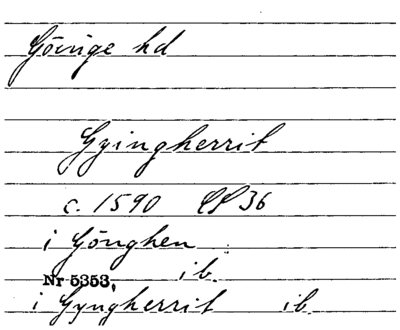 Göinge hd
Gyingherrit
c. 1590 LP 36
i Gönghen
Nr 5353, ib.
i Gyngherrit ib.